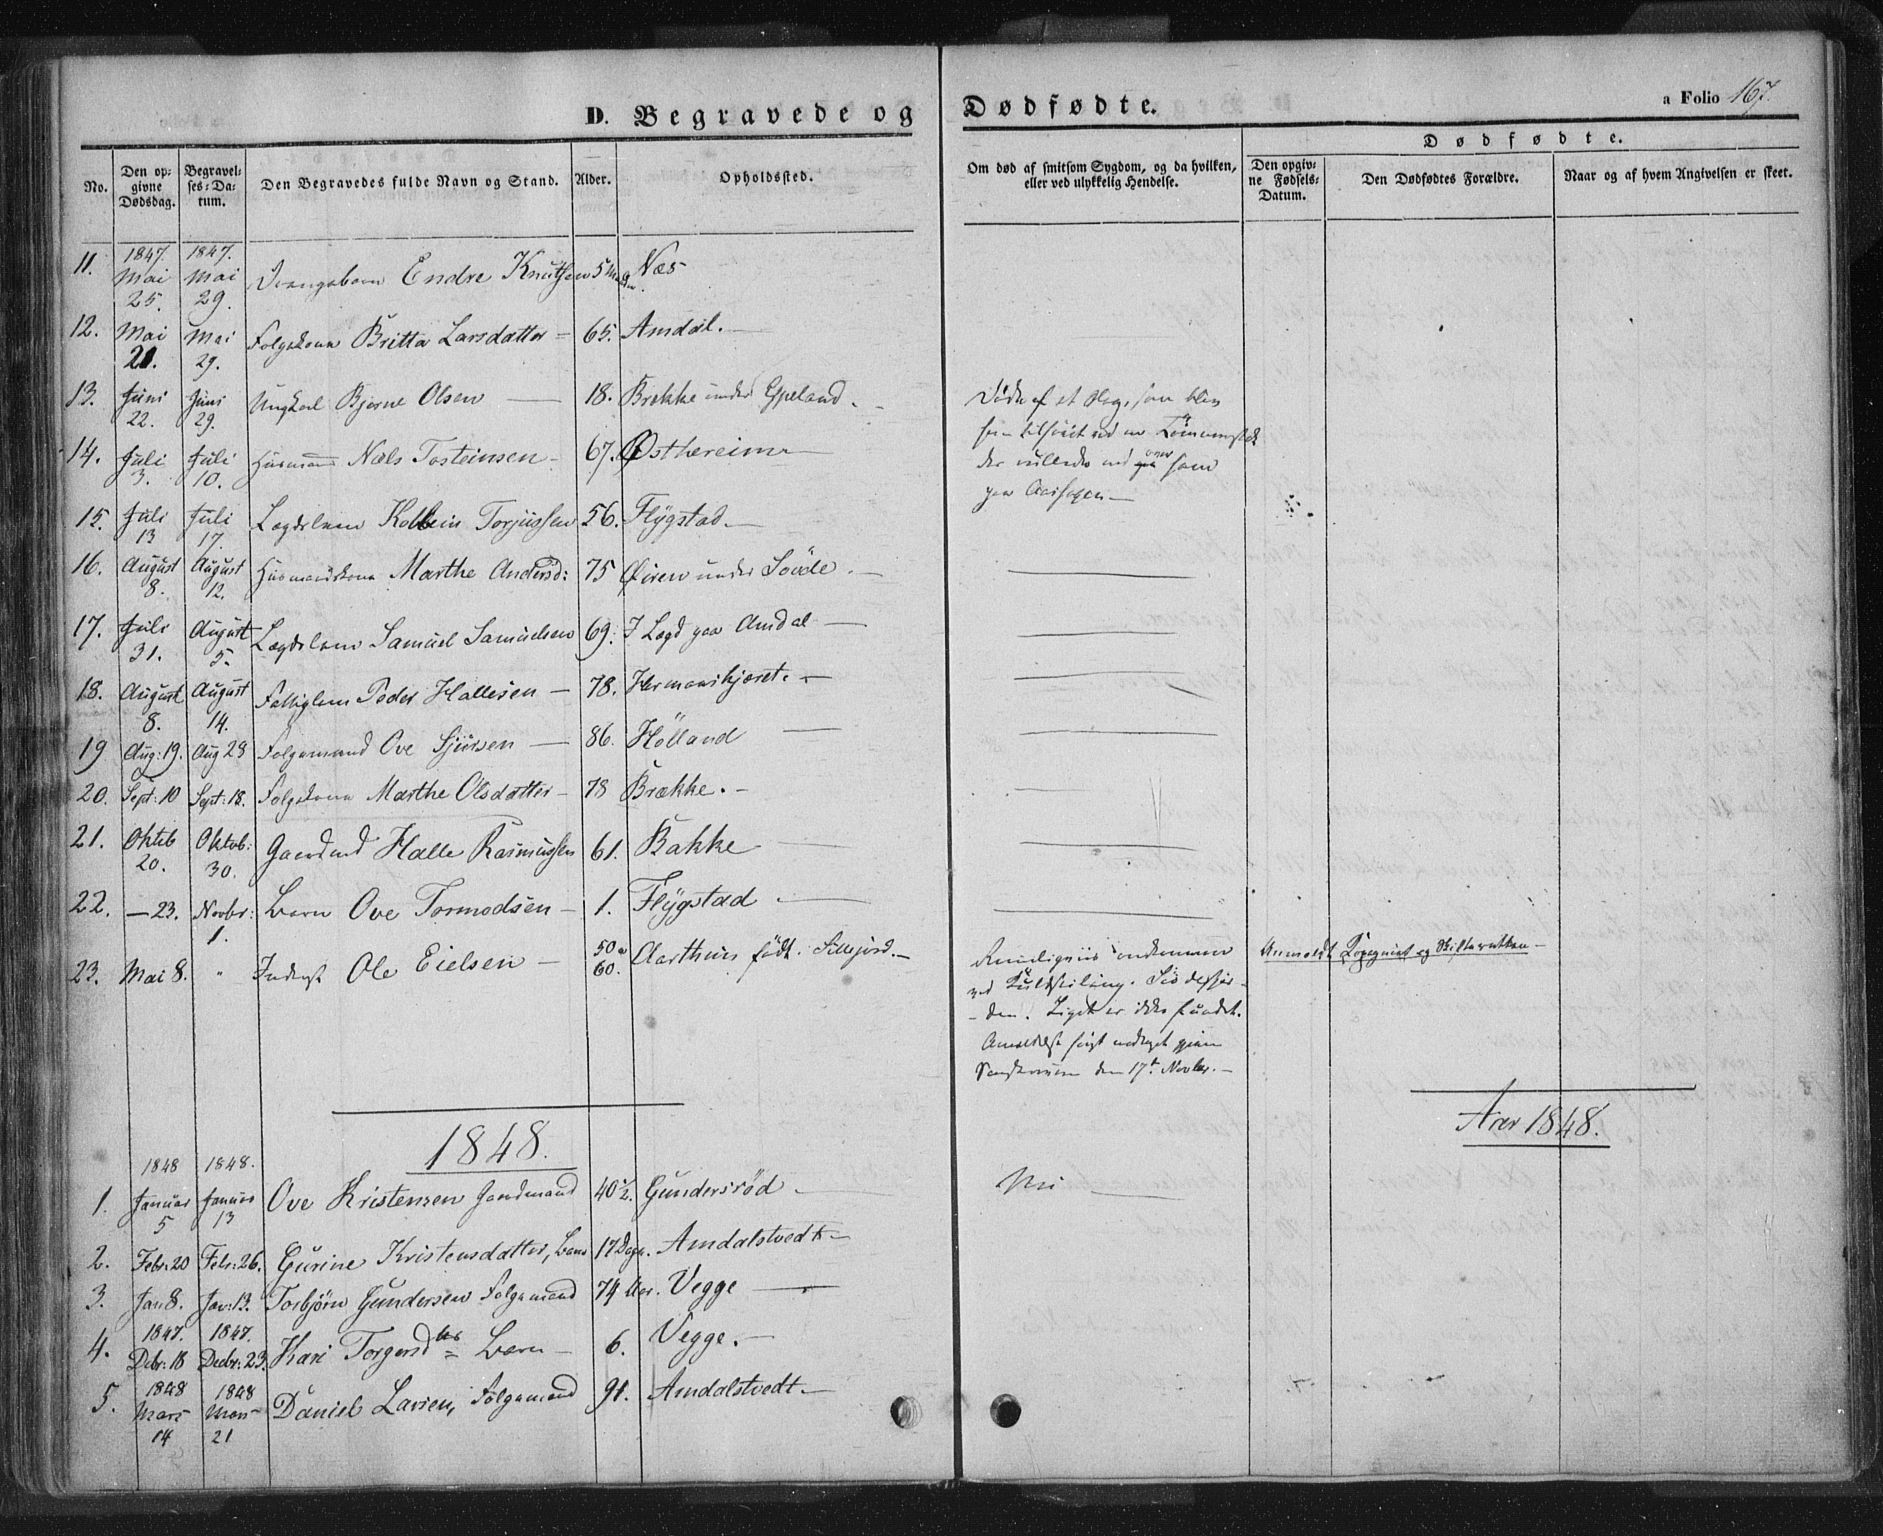 D. Begravede og Dødfødte.
a Folio 167.
No.
Den opgivne Dødsdag.
Begravelses-Datum.
Den Begravedes fulde Navn og Stand.
Alder.
Opholdssted.
Om død af smitsom Sygdom, og da hvilken, eller ved ulykkelig Hendelse.
Dødfødte.
Den opgivne Fødsels-Datum.
Den Dødfødtes Forældre.
Naar og af hvem Angivelsen er skeet.
11. 1847. Mai 25. 1847. Mai 29. Drengebarn Endre Knutsen 5 Næs
12. Mai 21. Mai 29. Folgekona Britta Larsdatter 65. Amdal.
13. Juni 22. Juni 29. Ungkarl Bjerne Olsen 18. Brekke under Espeland.
Døde af et Slag, som blev
ved en Tømmerstok
der rullede ned over ham
14. Juli 3. Juli 10. Husmand Næls Tosteinsen 67. Østhereim
15. Juli 13 Juli 17. Lægdslem Kolbein Torjussen 56. Flÿgstad
16. August 8. August 12. Husmandskona Marthe Andersd: 75 Øiren under Søvde.
17. Juli 31. August 5. Lægdslem Samuel Samuelsen 69. I Lægd paa Amdal
18. August 8. August 14. Fattiglem Peder Hallesen 78. Hermanskjæret.
19 Aug: 19. Aug 28 Folgemand Ove Sjursen 86. Hölland
20. Sept: 10 Sept: 18. Folgekona Marthe Olsdatter 78 Brække.
21. Oktob 20. Oktob: 30. Gaardmd Halle Rasmussen 61. Bakke
22. — 23. Novbr: 1. Barn Ove Tormodsen 1. Flÿgstad
23. Mai 8. " Inderst Ole Eielsen 50 a 60. Aarthun født. Sillejord.
Rimeligviis omkommen
ved Kuldseiling.
Liget er ikke fundet.
den 17de Novber.
Anmeldt Lensmand og Skifteretten
1848.
Aar 1848.
1. 1848 Januar 5 1848. Januar 13 Ove Kristensen Gaardmand 40½. Gundersröd
Nei
2. Febr: 20 Febr: 26. Gurine Kristensdatter, Barn 17 Dage. Amdalstvedt
3. Jan 8. Jan: 13. Torbjörn Gundersen Folgemand 74 Aar. Vegge
4. 1847. Debr: 18 1847. Decbr: 23. Kari Torgersdtr Barn 6. Vegge.
5. 1848 Mars 14 1848 Mars 21 Daniel Larsen, Folgemand 91. Amdalstvedt